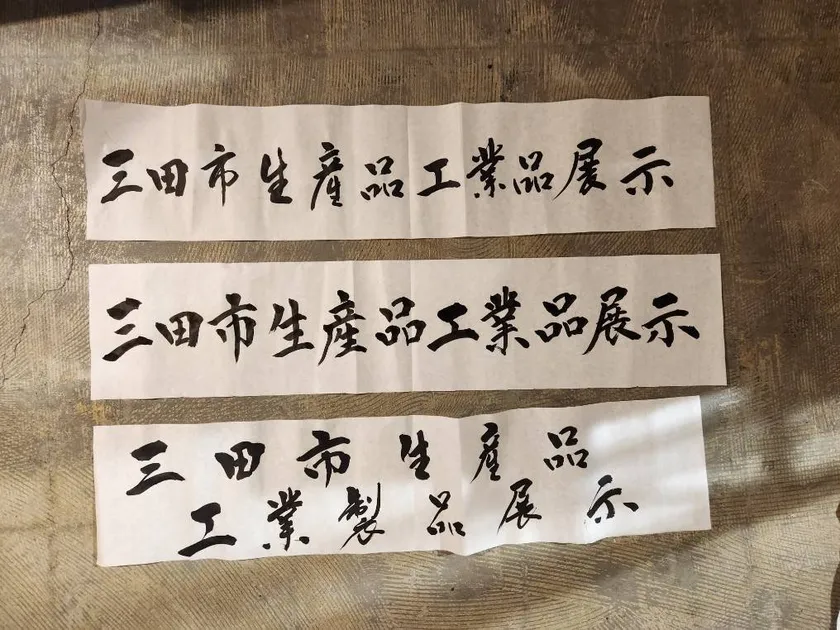 三田市生産品工業品展示
三田市生産品工業品展示
三田市生産品
工業製品展示